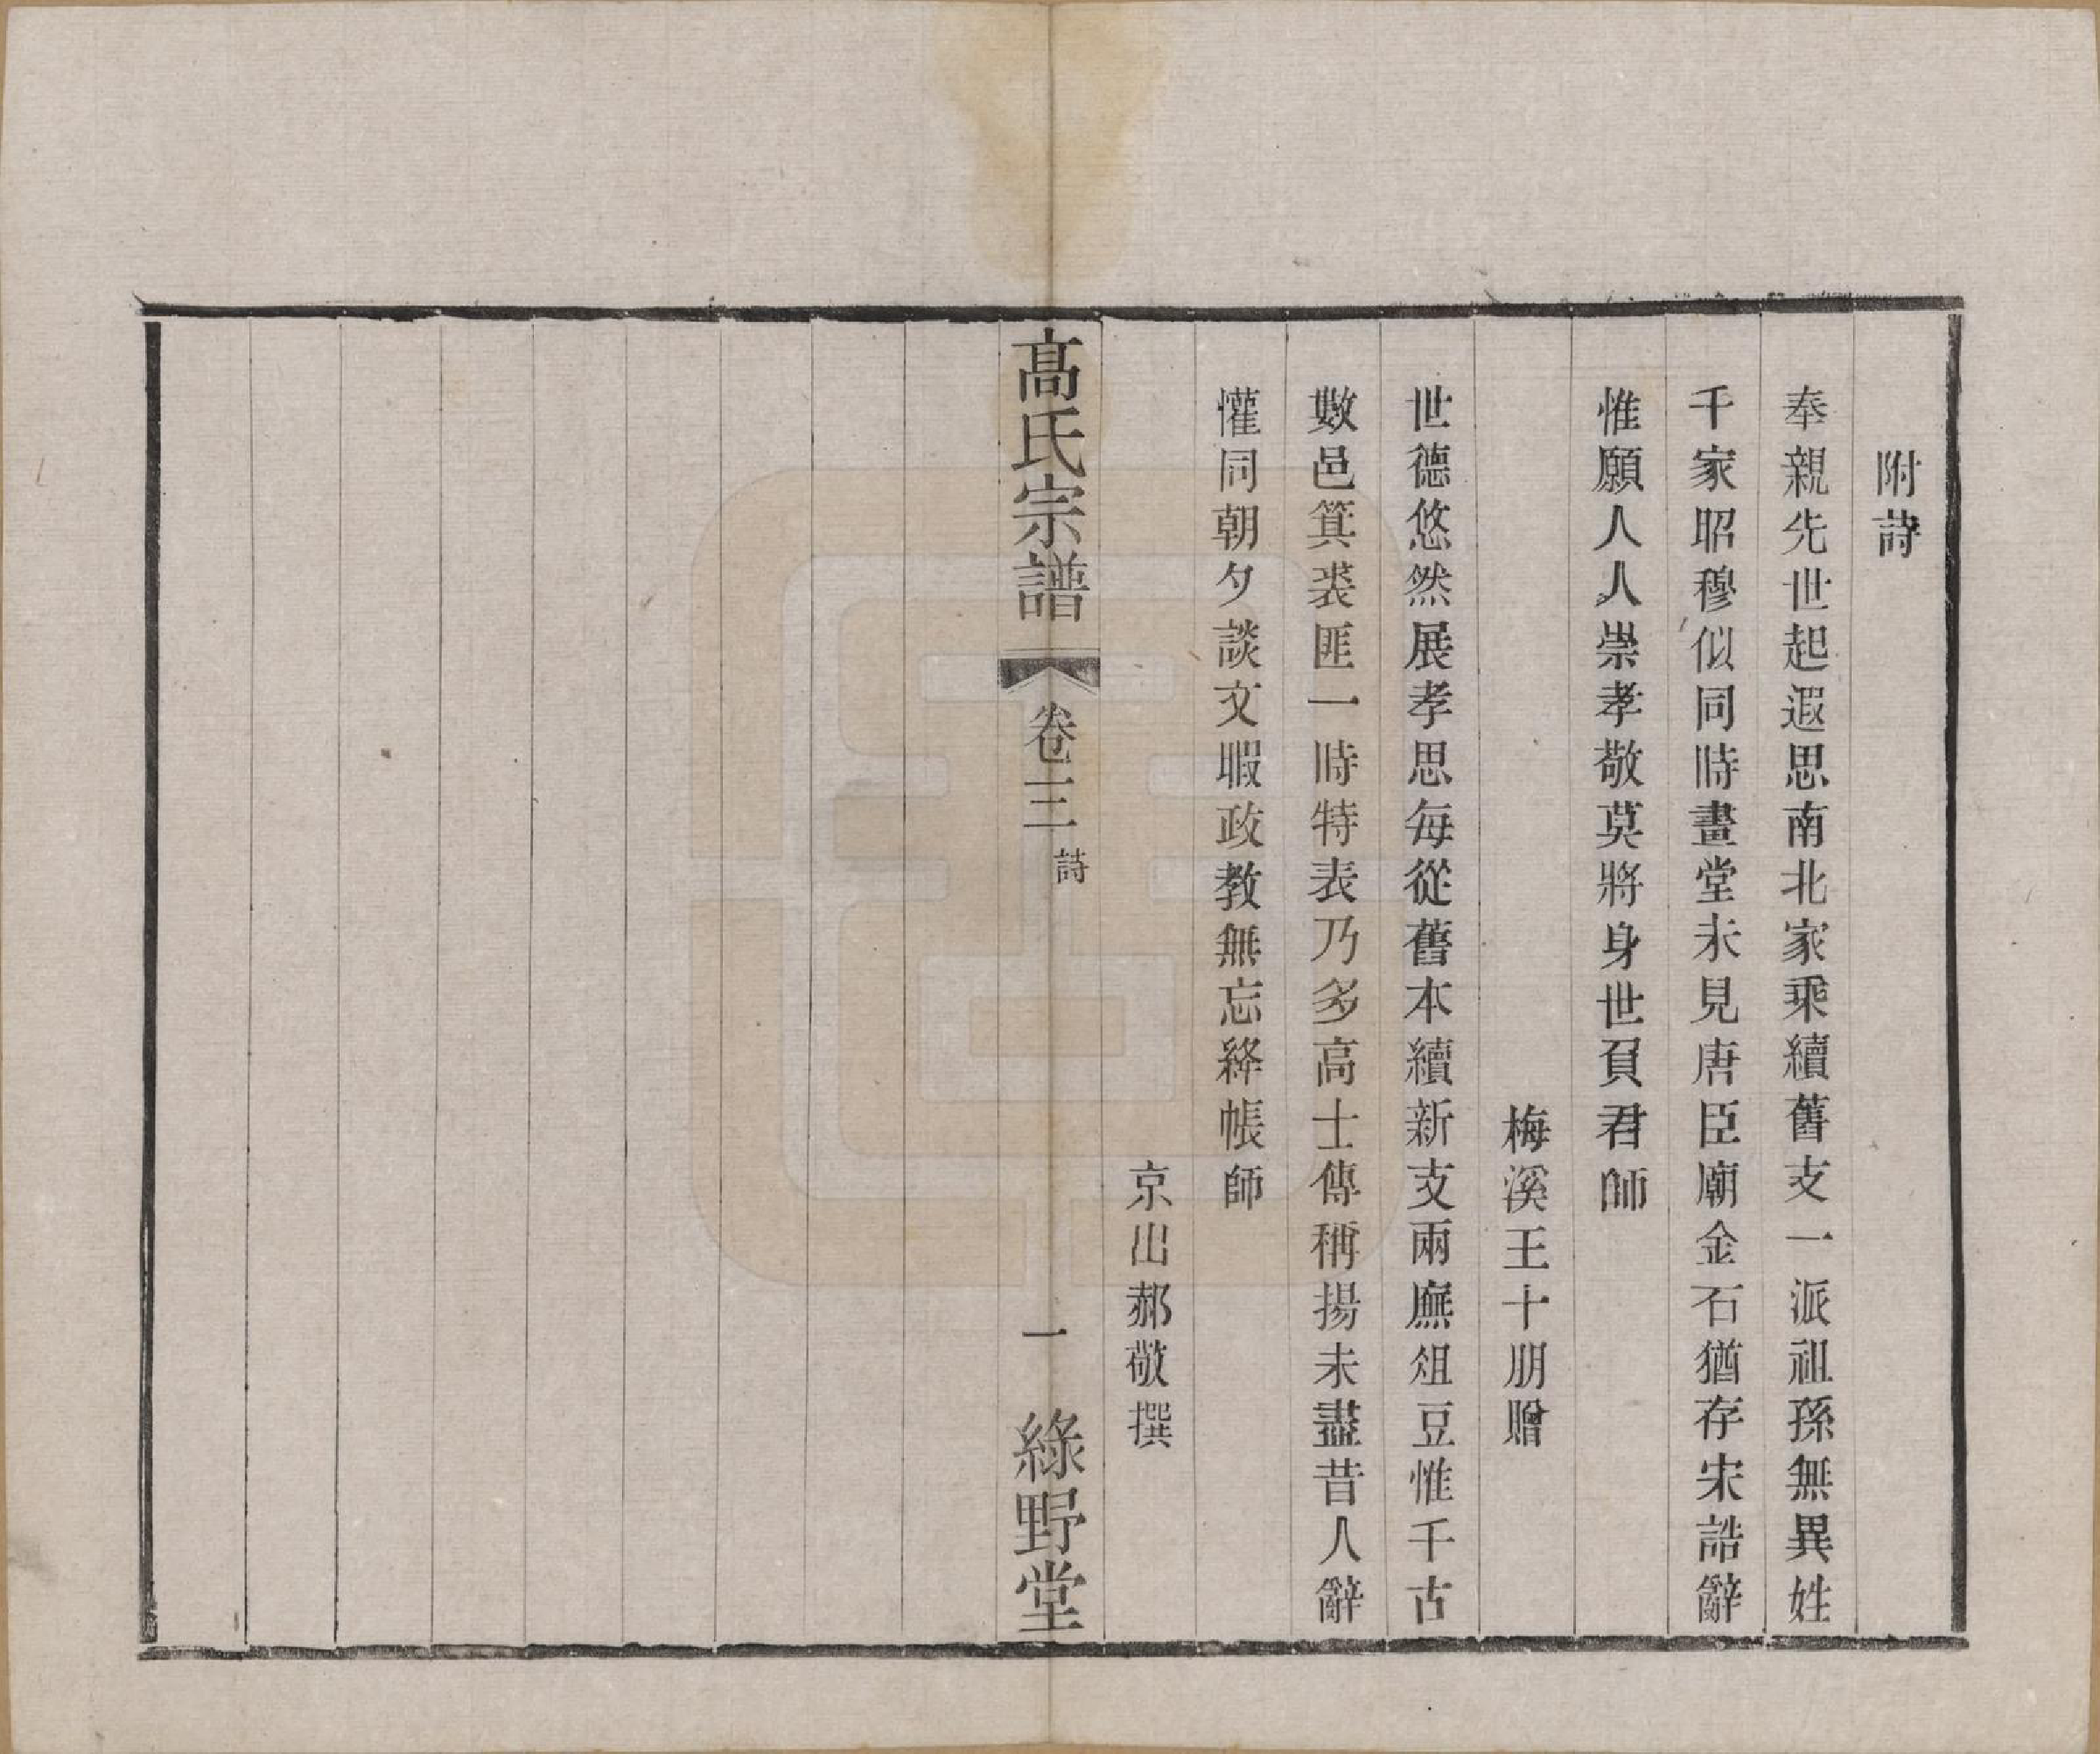 附詩
奉親先世起遐思南北家乘續舊支一派祖孫無異姓
千家昭穆似同時畫堂未見唐臣廟金石猶存宋誥辭
惟願人人崇孝敬莫將身世負君師
梅溪王十朋贈
世德悠然展孝思每從舊本續新支兩廡俎豆惟千古
數邑箕裘匪一時特表乃多高士傳稱揚未盡昔人辭
懽同朝夕談文暇政教無忘絳帳師
京山郝敬撰
髙氏宗譜
卷三
詩
一
綠野堂